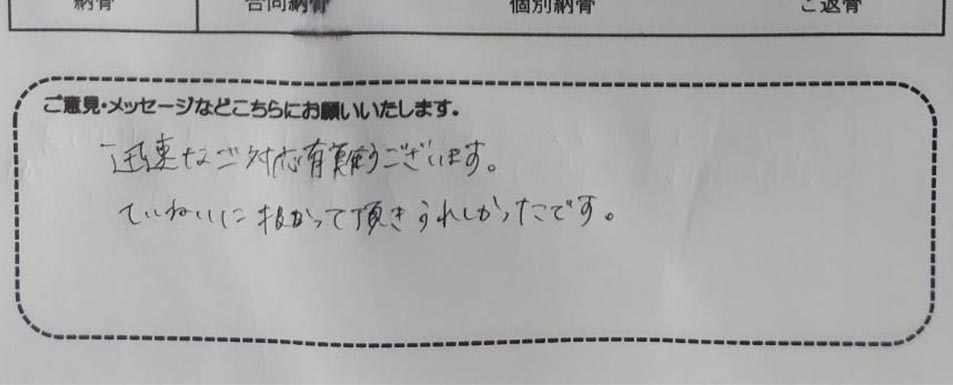 納骨 合同納骨 個別納骨 ご返骨
ご意見・メッセージなどこちらにお願いいたします。
迅速なご対応有難うございます。
ていねいに扱って頂きうれしかったです。